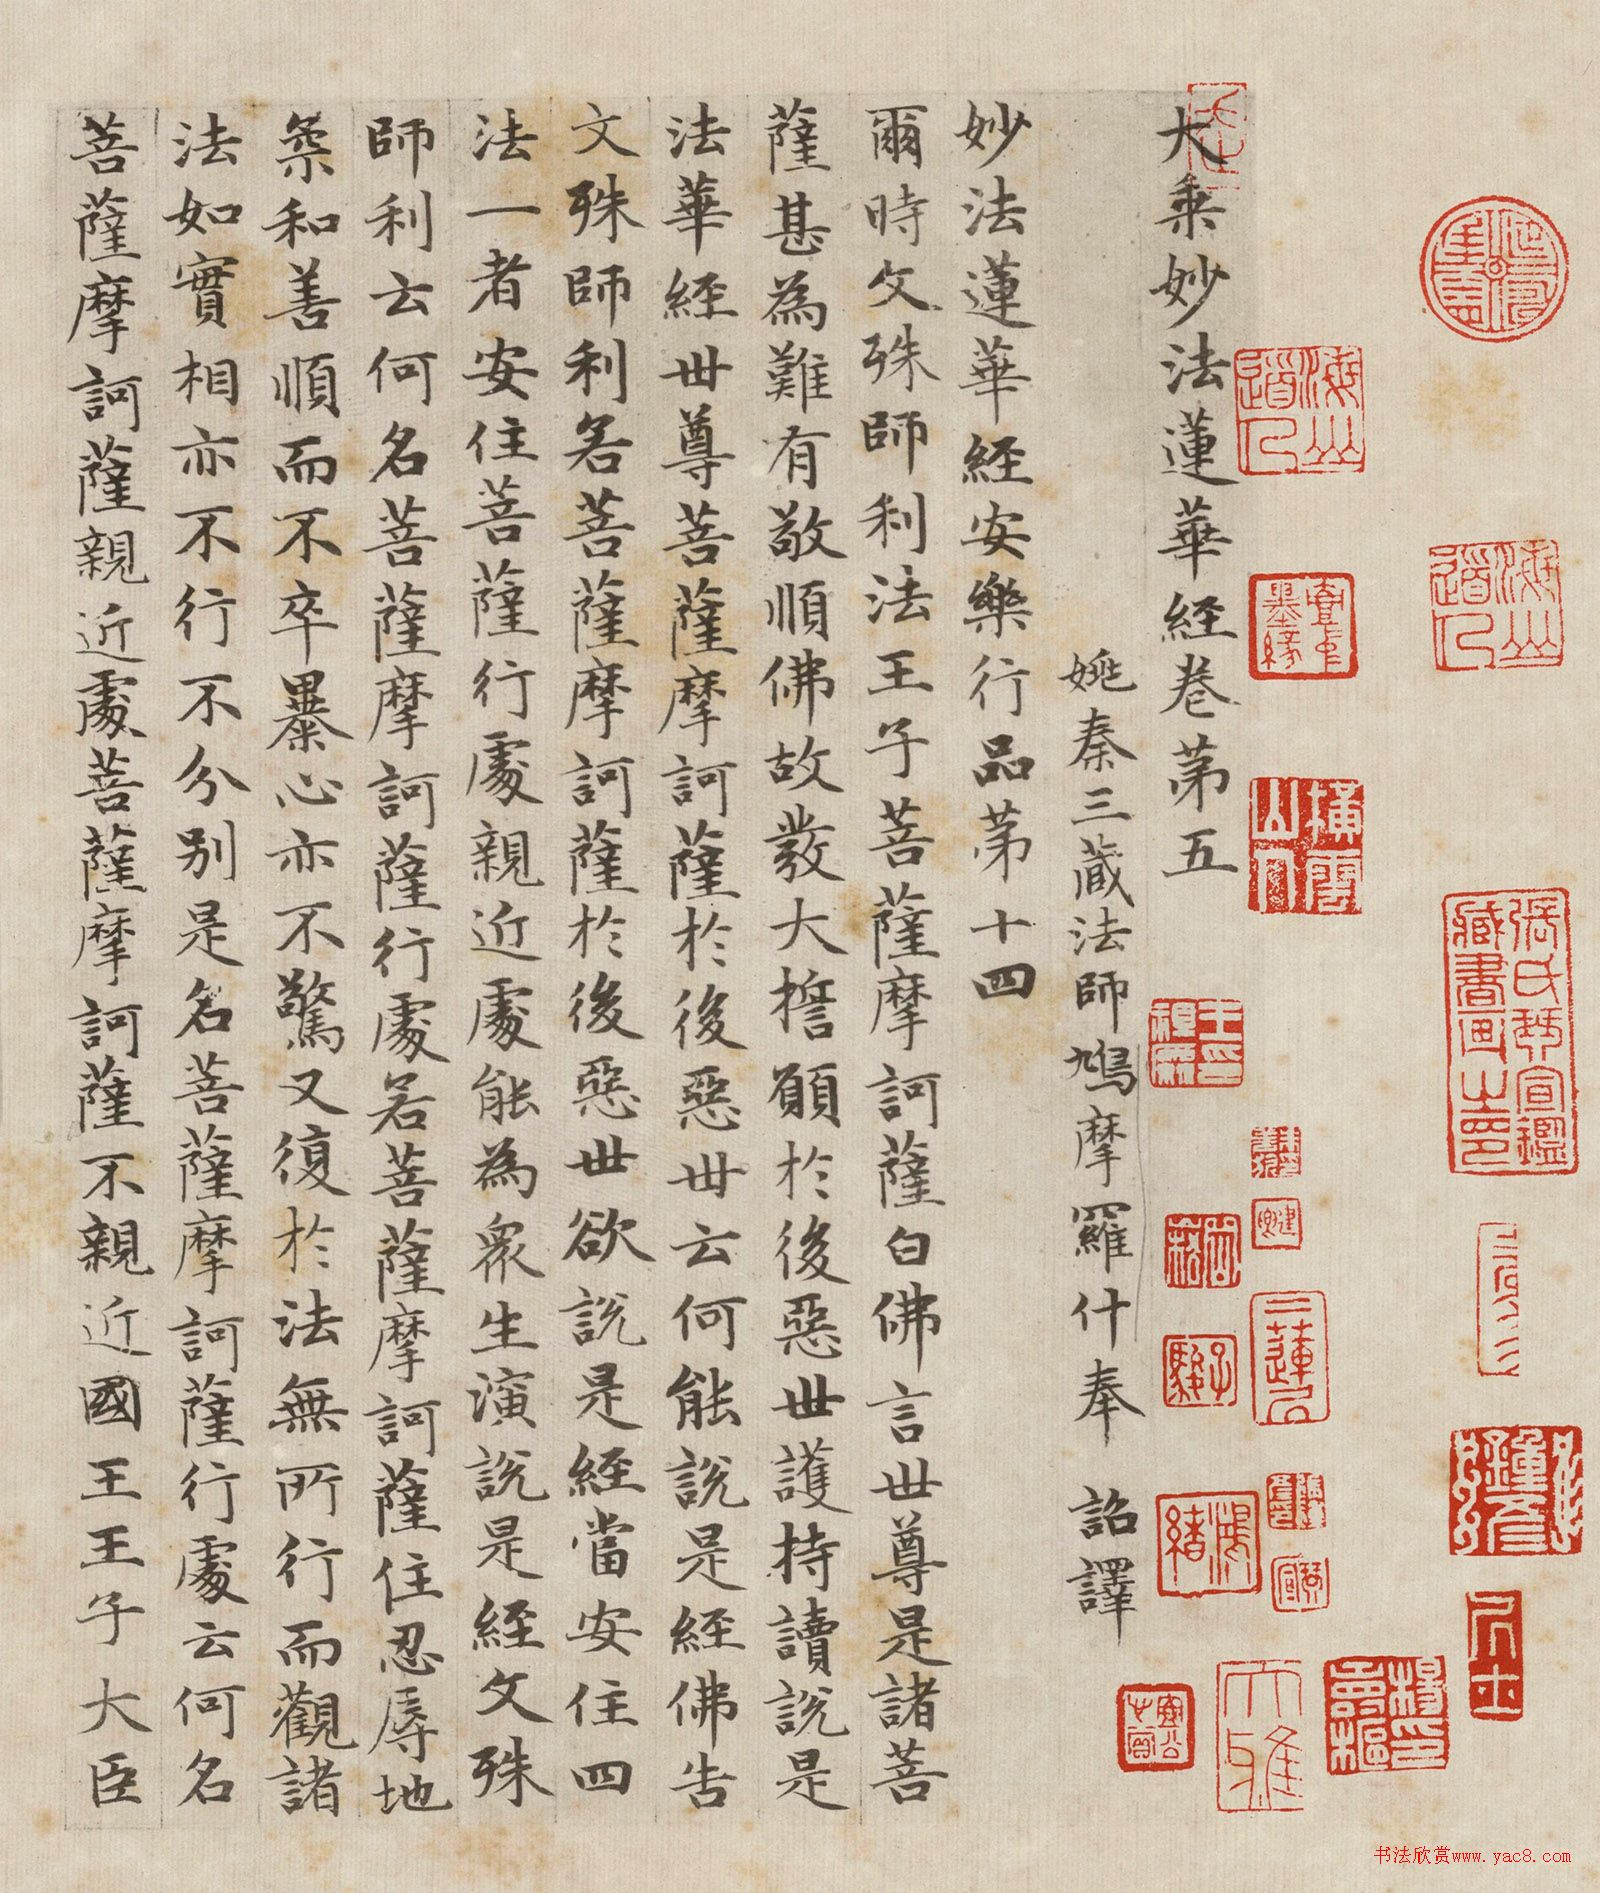 大乘妙法蓮華經卷第五
姚秦三藏法師鳩摩羅什奉 詔譯
妙法蓮華經安樂行品第十四
爾時文殊師利法王子菩薩摩訶薩白佛言世尊是諸菩
薩甚為難有敬順佛故發大誓願於後惡世護持讀說是
法華經世尊菩薩摩訶薩於後惡世云何能說是經佛告
文殊師利若菩薩摩訶薩於後惡世欲說是經當安住四
法一者安住菩薩行處親近處能為眾生演說是經文殊
師利云何名菩薩摩訶薩行處若菩薩摩訶薩住忍辱地
柔和善順而不卒暴心亦不驚又復於法無所行而觀諸
法如實相亦不行不分別是名菩薩摩訶薩行處云何名
菩薩摩訶薩親近處菩薩摩訶薩不親近國王王子大臣
子駿
大雅
书法欣赏www.yac8.com